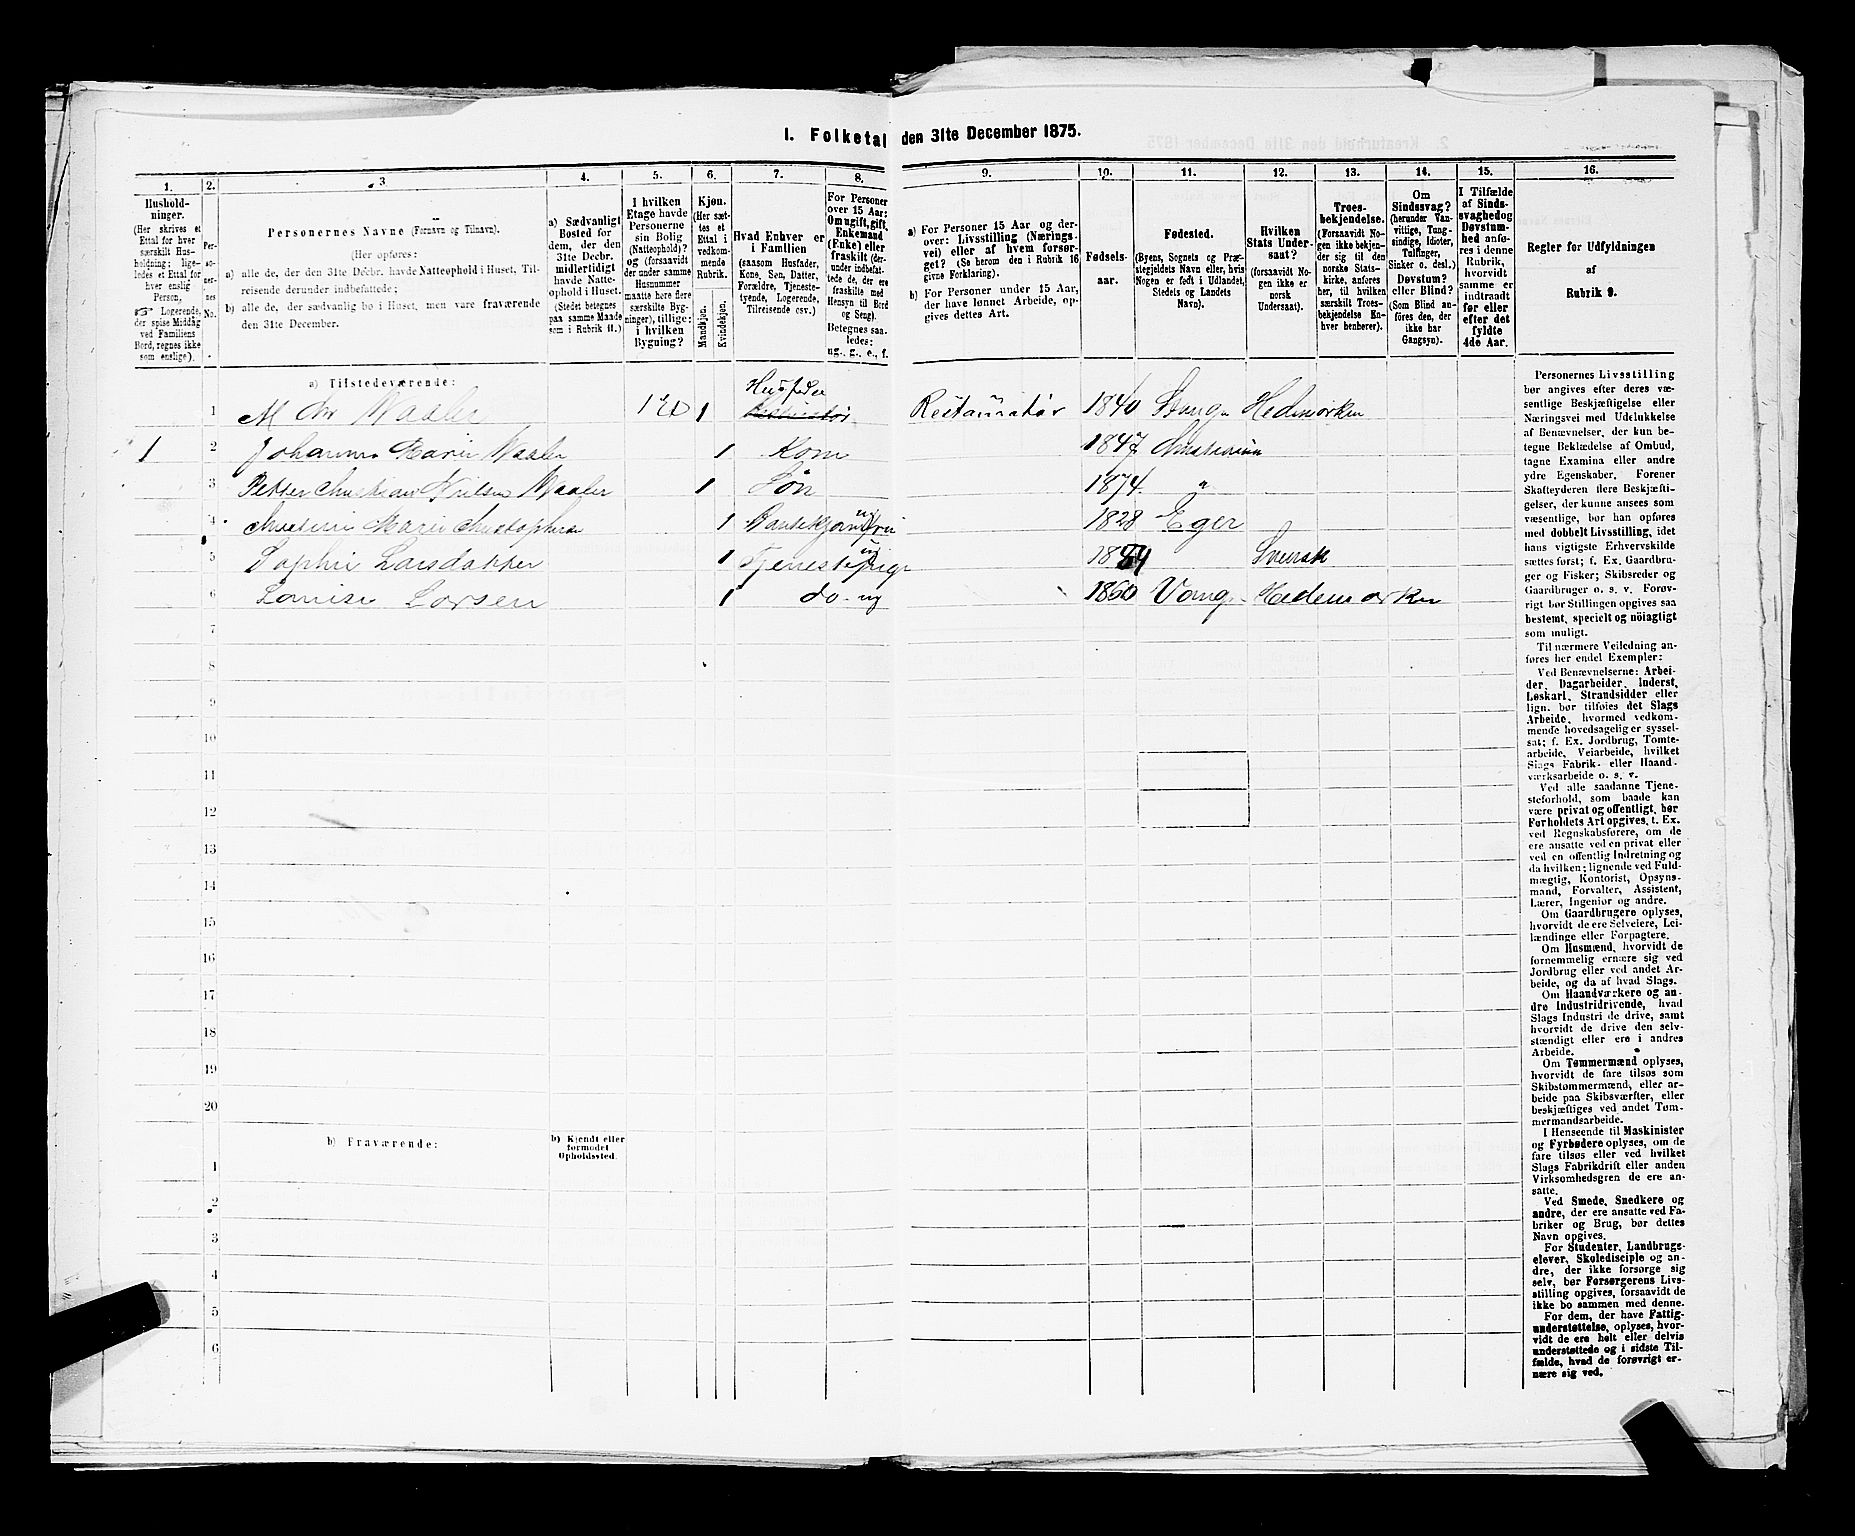 1. Folketal den 31te December 1875.
1.
2.
3.
4.
5.
6.
7.
8.
9.
10.
11.
12.
13.
14.
15.
16.
Husholdninger.
(Her skrives et
Ettal for hver
særskilt Husholdning;
ligeledes et Ettal for
hver enslig
Person,
☞ Logerende,
der spise Middag
ved Familiens
Bord, regnes ikke
som enslige).
Personernes No.
Personernes Navne (Fornavn og Tilnavn).
(Her opføres:
a) alle de, der den 31te Decbr. havde Natteophold i Huset, Tilreisende
derunder indbefattede;
b) alle de, der sædvanlig bo i Huset, men vare fraværende
den 31te December.
a) Sædvanligt
Bosted for
dem, der den
31te Decbr.
midlertidigt
havde Natteophold
i Huset.
(Stedet betegnes
paa samme Maade
som i Rubrik 11.)
I hvilken
Etage havde
Personerne
sin Bolig
(Natteophold)?
og (forsaavidt
der under samme
Husnummer
maatte høre flere
særskilte Bygninger),
tillige:
i hvilken
Bygning?
Kjøn.
(Her sættes
et
Ettal i
vedkommende
Rubrik.
Mandkjøn.
Kvindekjøn.
Hvad Enhver er
i Familien
(saasom Husfader,
Kone, Søn, Datter,
Forældre, Tjenestetyende,
Logerende,
Tilreisende osv.)
For Personer
over 15 Aar:
Om ugift, gift,
Enkemand
(Enke) eller
fraskilt (derunder
indbefattede,
der ere
fraskilte med
Hensyn til Bord
og Seng).
Betegnes saaledes:
ug., g., e., f.
a) For Personer 15 Aar og derover:
Livsstilling (Næringsvei)
eller af hvem forsørget?
(Se herom den i Rubrik 16
givne Forklaring).
b) For Personer under 15 Aar,
der have lønnet Arbeide, opgives
dettes Art.
Fødselsaar.
Fødested.
(Byens, Sognets og Præstegjeldets
Navn eller, hvis
Nogen er født i Udlandet,
Stedets og Landets
Navn).
Hvilken
Stats Undersaat?
(forsaavidt Nogen
ikke er
norsk
Undersaat).
Troesbekjendelse.
(Forsaavidt Nogen
ikke bekjender
sig til den
norske Statskirke,
anføres
her, til hvilken
særskilt Troesbekjendelse
Enhver
henhører).
Om
Sindssvag?
(herunder Vanvittige,
Tungsindige,
Idioter,
Tullinger,
Sinker o. desl.)
Døvstum?
eller Blind?
(Som Blind anføres
den, der
ikke har
Gangsyn).
I Tilfælde
af Sindssvaghed
og
Døvstumhed
anføres
i denne
Rubrik,
hvorvidt
samme er
indtraadt
før eller
efter det
fyldte
4de Aar.
Regler for Udfyldningen
af
Rubrik 9.
a) Tilstedeværende:
1 M Chr Waaler 1 1 Husfader Restauratør 1840 Stange Hedemarken
1 2 Johanne Marie Waaler 1 Kone 1847 Christiania
3 Petter Christian Nielsen Waaler 1 Søn 1874 "
4 Christine Marie Christophersen 1 ug 1828 Eger
5 Sophie Larsdatter 1 Tjenestepige ug Svensk
6 Louise Larsen 1 do ug 1860 Vang Hedemarken
7
8
9
10
11
12
13
14
15
16
17
18
19
20
b) Fraværende:
b) Kjendt eller
formodet
Opholdssted.
1
2
3
4
5
6
Personernes Livsstilling
bør angives efter deres væsentlige
Beskjæftigelse eller
Næringsvei med Udelukkelse
af Benævnelser, der kun betegne
Beklædelse af Ombud,
tagne Examina eller andre
ydre Egenskaber. Forener
Skatteyderen flere Beskjæftigelser,
der kunne ansees som
væsentlige, bør han opføres
med dobbelt Livsstilling, idet
hans vigtigste Erhvervskilde
sættes først; f. Ex. Gaardbruger
og Fisker; Skibsreder og
Gaardbruger o. s. v. Forøvrigt
bør Stillingen opgives saa
bestemt, specielt og nöiagtigt
som muligt.
Til nærmere Veiledning anføres
her endel Exempler:
Ved Benævnelserne: Arbeider,
Dagarbeider, Inderst,
Løskarl, Strandsidder eller
lign. bør tilføies det Slags
Arbeide, hvormed vedkommende
hovedsagelig er sysselsat;
f. Ex. Jordbrug, Tomtearbeide,
Veiarbeide, hvilket
Slags Fabrik- eller Haandværksarbeide
o. s. v.
Ved alle saadanne Tjenesteforhold,
som baade kan
være privat og offentligt, bør
Forholdets Art opgives, t. Ex.
ved Regnskabsførere, om de
ere ansatte ved en privat eller
ved en offentlig Indretning og
da hvilken; lignende ved Fuldmægtig,
Kontorist, Opsynsmand,
Forvalter, Assistent,
Lærer, Ingeniør og andre.
Om Gaardbrugere oplyses,
hvorvidt de ere Selveiere, Leilændinge
eller Forpagtere.
Om Husmænd, hvorvidt de
fornemmelig ernære sig ved
Jordbrug eller ved andet Arbeide,
og da af hvad Slags.
Om Haandværkere og andre
Industridrivende, hvad
Slags Industri de drive, samt
hvorvidt de drive den selvstændigt
eller ere i andres
Arbeide.
Om Tømmermænd oplyses,
hvorvidt de fare tilsøs som
Skibstømmermænd, eller arbeide
paa Skibsværfter, eller
beskjæftiges ved andet Tømmermandsarbeide.
I Henseende til Maskinister
og Fyrbødere oplyses, om de
fare tilsøs eller ved hvilket
Slags Fabrikdrift eller anden
Virksomhedsgren de ere ansatte.
Ved Smede, Snedkere og
andre, der ere ansatte ved Fabriker
og Brug, bør dettes
Navn opgives.
For Studenter, Landbrugselever,
Skoledisciple og andre,
der ikke forsørge sig
selv, bør Forsørgerens Livsstilling
opgives, forsaavidt de
ikke bo sammen med denne.
For dem, der have Fattigunderstøttelse,
oplyses, hvorvidt
de ere helt eller delvis
understøttede og i sidste Tilfælde,
hvad de forøvrigt ernære
sig ved.